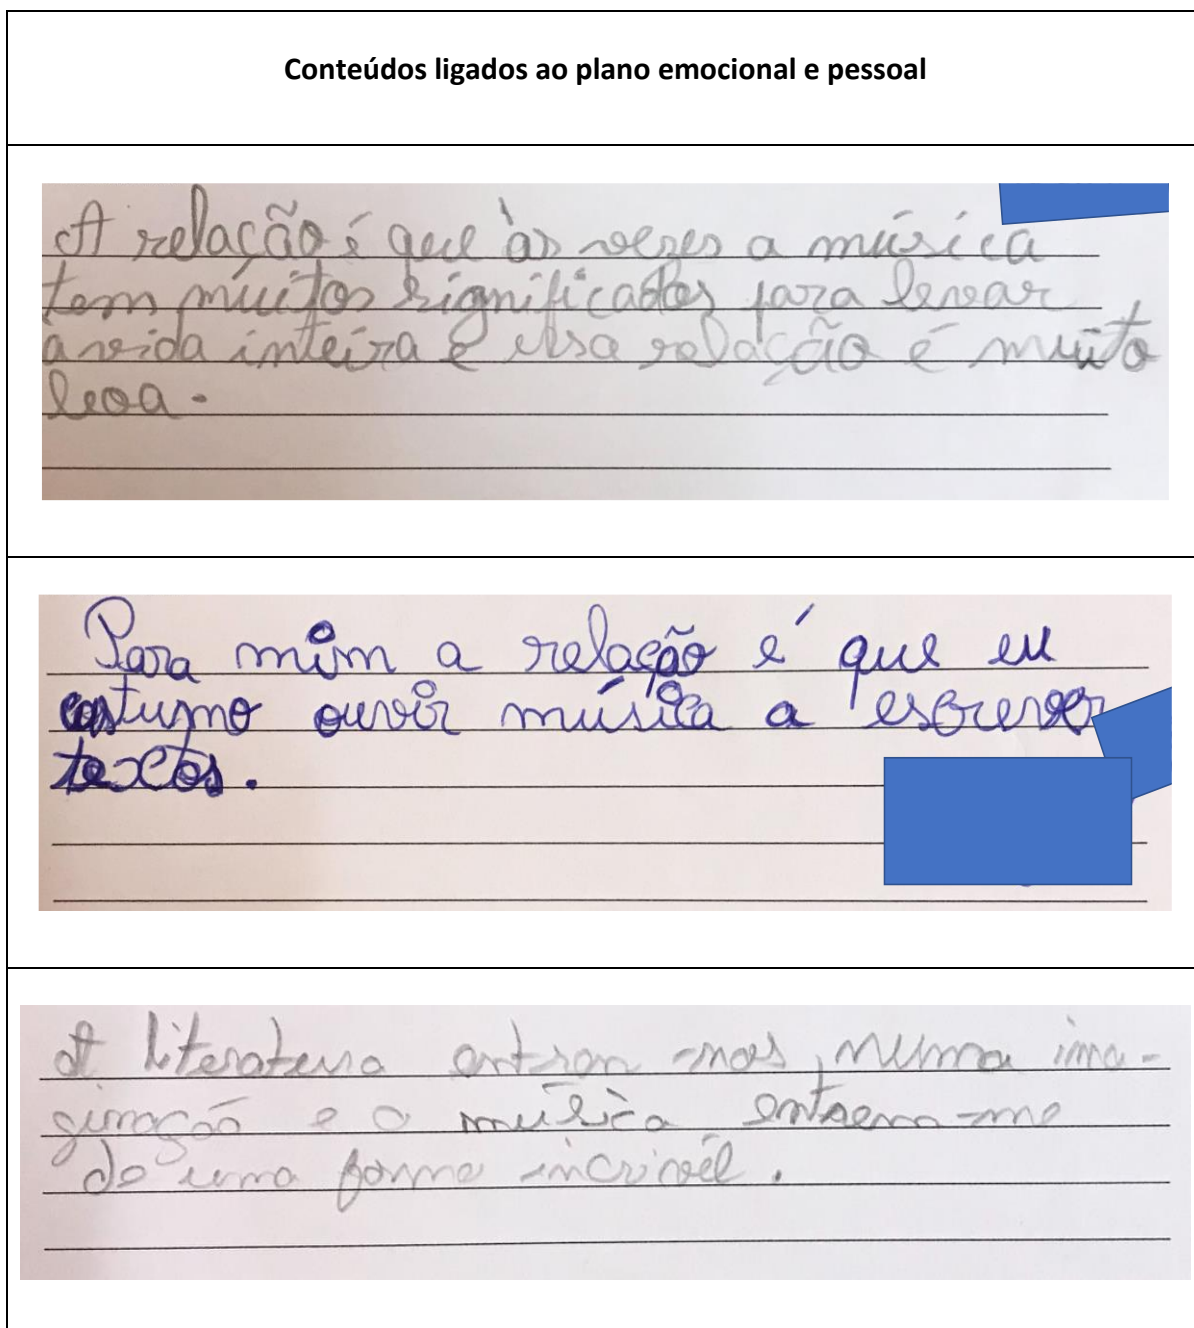 Conteúdos ligados ao plano emocional e pessoal
A relação é que às vezes a música
tem muitos significados para levar
a vida inteira e essa relação é muito
boa.
Para mim a relação é que eu
costumo ouvir música a escrever
textos.
A literatura entran-nos, numa ima-
ginação e a música entrem-me
de uma forma incrível.